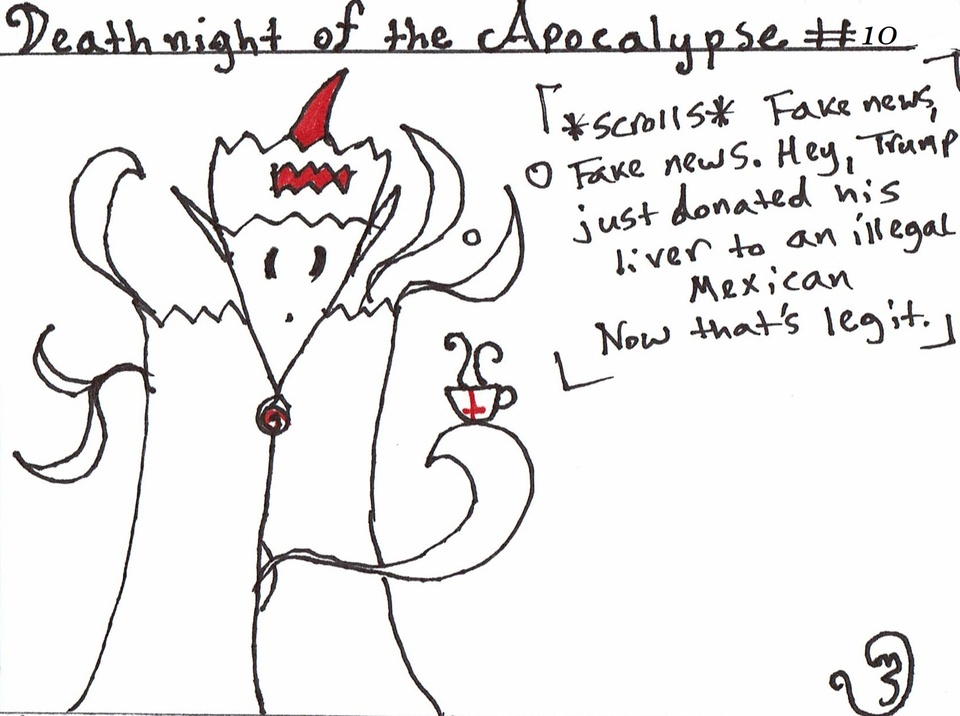 Deathnight of the Apocalypse #10
*scrolls* Fake news,
Fake news. Hey, Trump
just donated his
liver to an illegal
Mexican
Now that's legit.